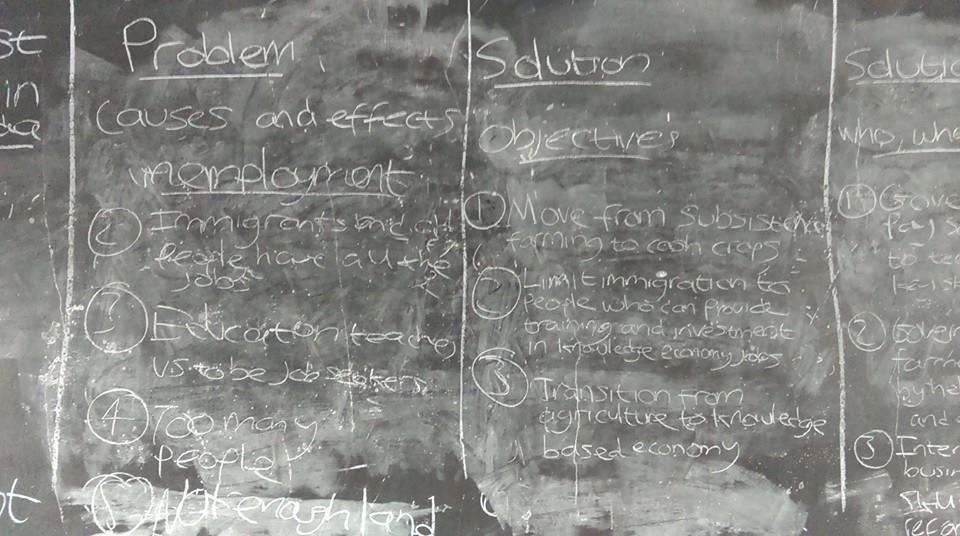 st
in
Problem
causes and effects
unemployment
② Immigrants and old
people have all the
jobs
③ Education teaches
us to be job seekers
④ Too many
people
⑤ Not enough land
Solution
Objectives
① Move from Subsistence
farming to cash crops
② Limit immigration to
people who can provide
training and investment
in knowledge economy jobs
③ Transition from
agriculture to knowledge
based economy
Solutio
who, whe
①
②
③ Inter
busin